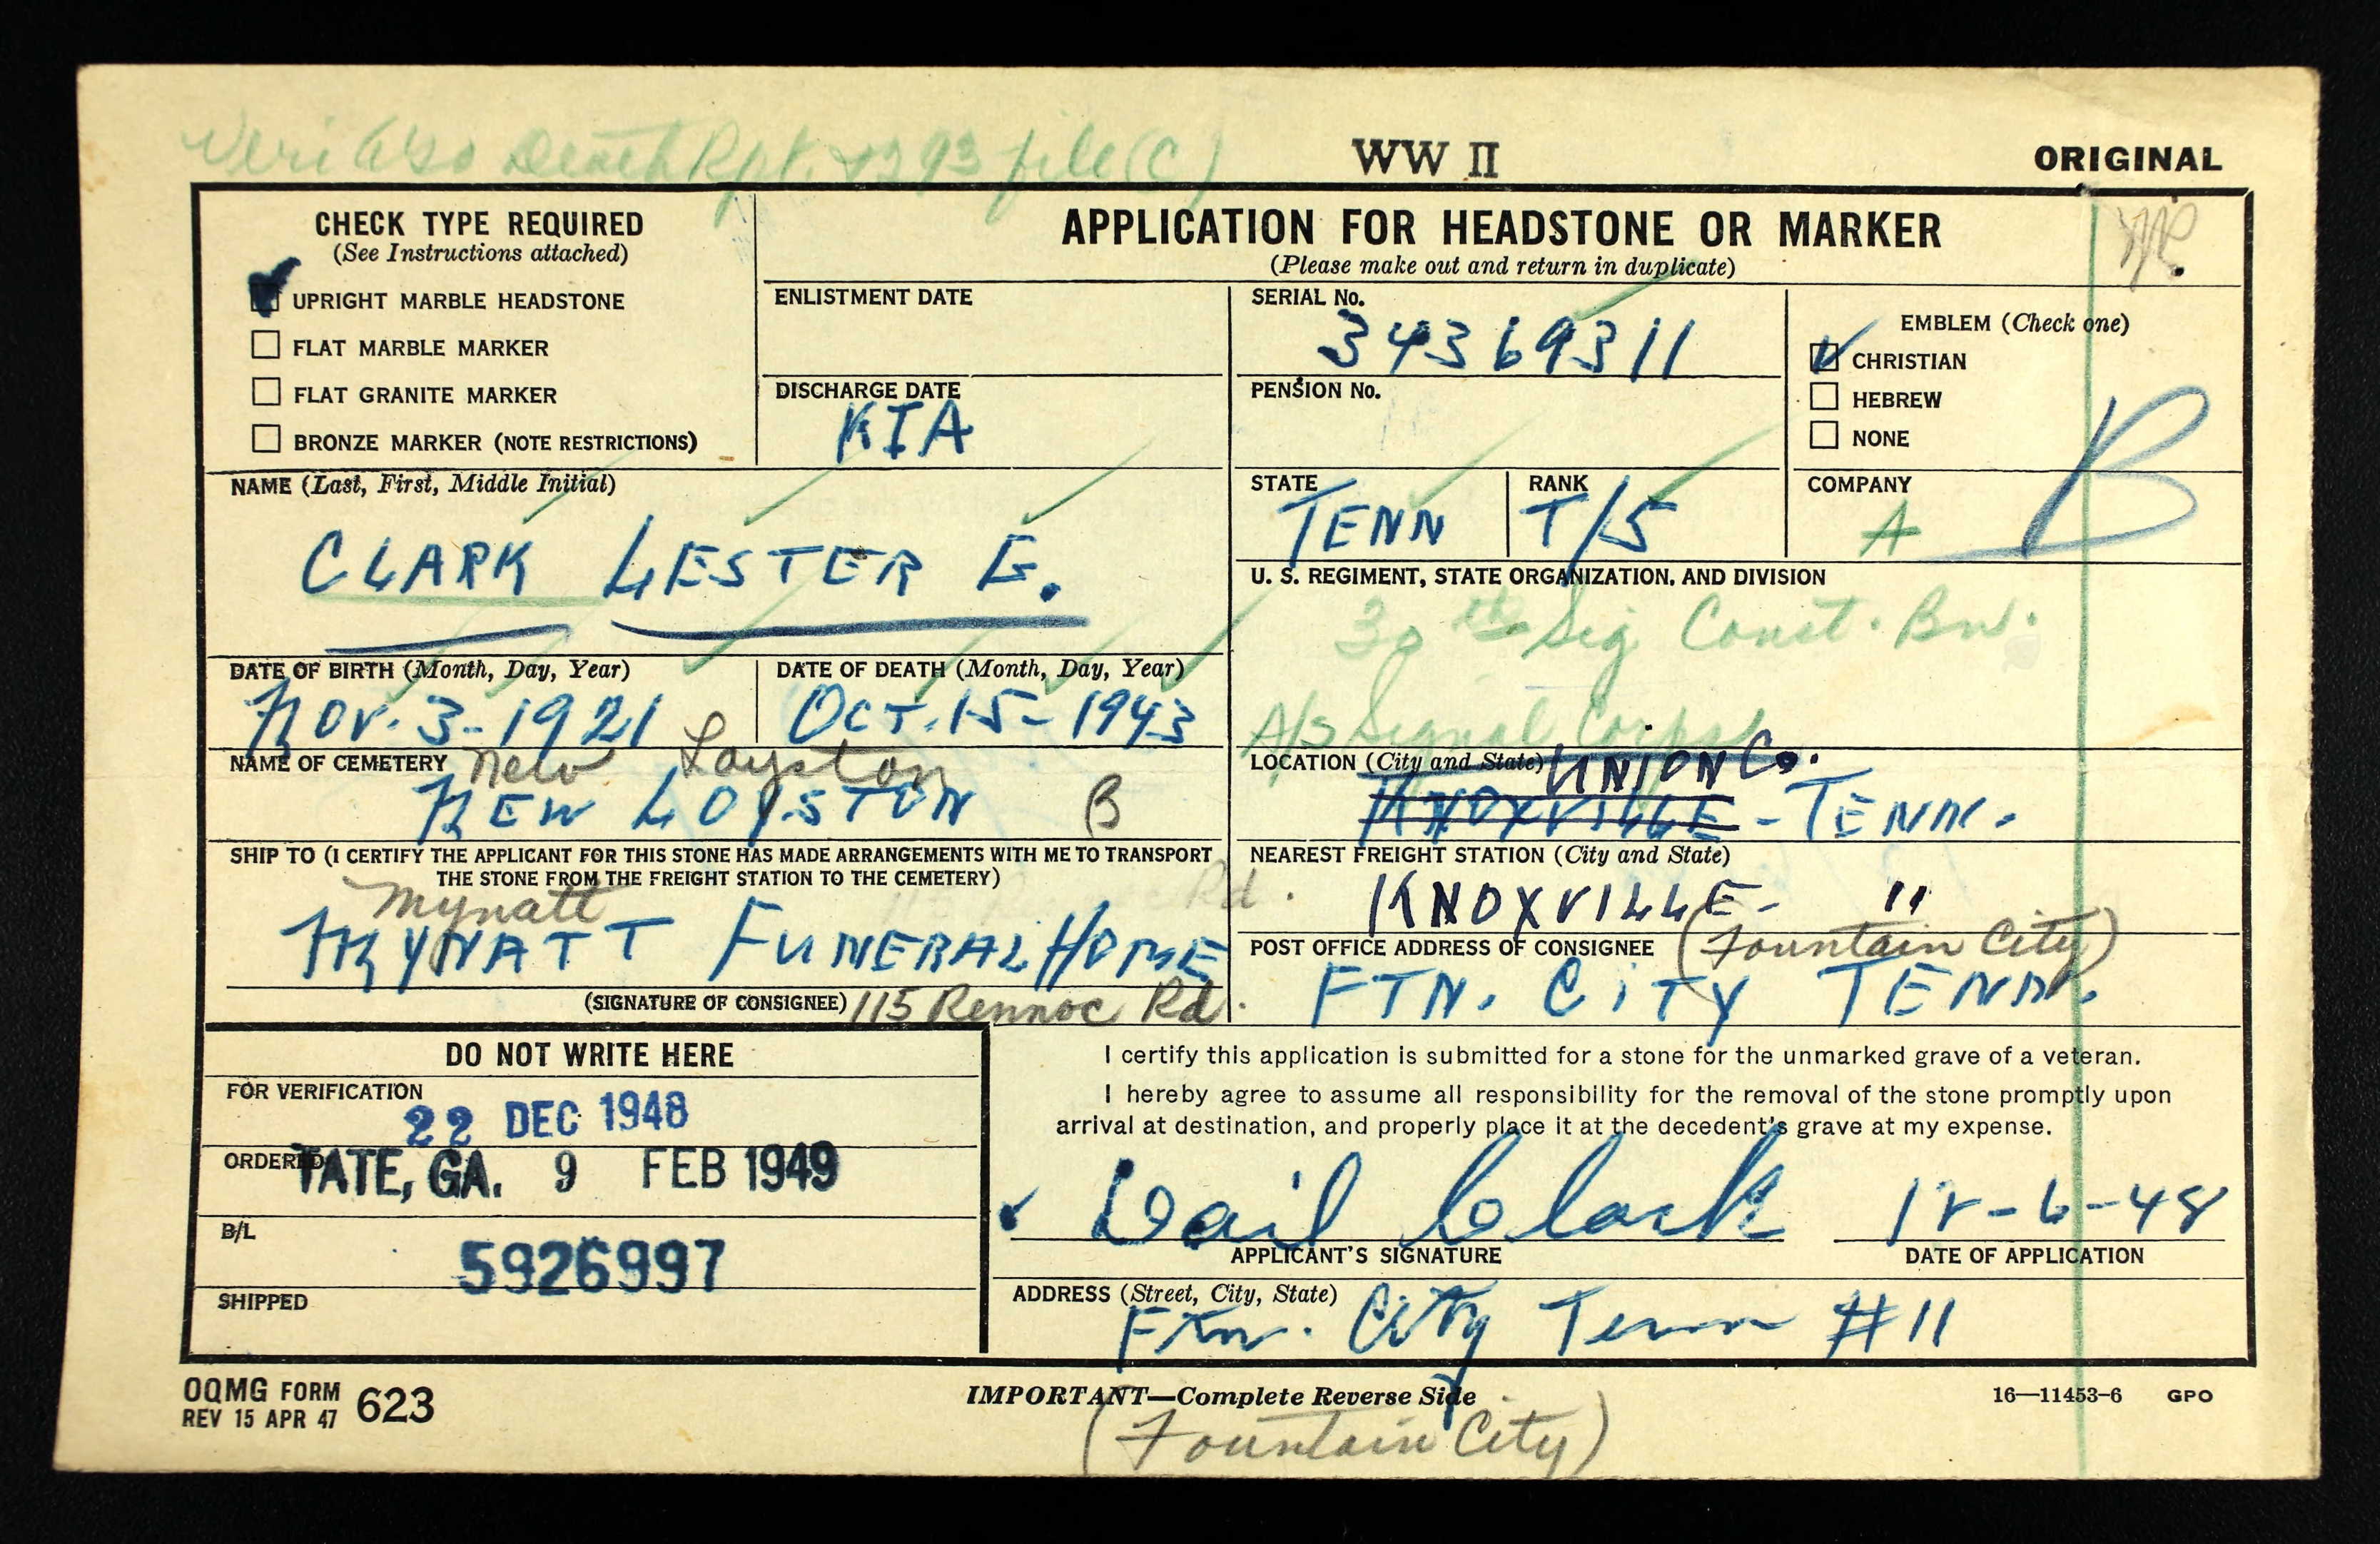 Death Rpt. 1293 file (C)
WW II
ORIGINAL
CHECK TYPE REQUIRED
(See Instructions attached)
UPRIGHT MARBLE HEADSTONE
FLAT MARBLE MARKER
FLAT GRANITE MARKER
BRONZE MARKER (NOTE RESTRICTIONS)
APPLICATION FOR HEADSTONE OR MARKER
(Please make out and return in duplicate)
ENLISTMENT DATE
DISCHARGE DATE
KIA
SERIAL No.
34369311
PENSION No.
EMBLEM (Check one)
CHRISTIAN
HEBREW
NONE
B
NAME (Last, First, Middle Initial)
CLARK LESTER G.
STATE
TENN
RANK
T/5
COMPANY
A
U. S. REGIMENT, STATE ORGANIZATION, AND DIVISION
30th Sig Const. Bn.
A/S Signal Corps
DATE OF BIRTH (Month, Day, Year)
NOV. 3-1921
DATE OF DEATH (Month, Day, Year)
OCT. 15-1943
NAME OF CEMETERY
New Loyston
NEW LOYSTON B
LOCATION (City and State)
UNION Co.
KNOXVILLE - TENN.
SHIP TO (I CERTIFY THE APPLICANT FOR THIS STONE HAS MADE ARRANGEMENTS WITH ME TO TRANSPORT
THE STONE FROM THE FREIGHT STATION TO THE CEMETERY)
Mynatt
MYNATT FUNERAL HOME
(SIGNATURE OF CONSIGNEE) 115 Rennoc Rd.
NEAREST FREIGHT STATION (City and State)
KNOXVILLE - "
POST OFFICE ADDRESS OF CONSIGNEE (Fountain City)
FTN. CITY TENN.
DO NOT WRITE HERE
FOR VERIFICATION
22 DEC 1948
ORDERED
TATE, GA. 9 FEB 1949
B/L
5926997
SHIPPED
I certify this application is submitted for a stone for the unmarked grave of a veteran.
I hereby agree to assume all responsibility for the removal of the stone promptly upon
arrival at destination, and properly place it at the decedent's grave at my expense.
Vail Clark 12-6-48
APPLICANT'S SIGNATURE
DATE OF APPLICATION
ADDRESS (Street, City, State)
Ftn. City Tenn #11
OQMG FORM 623
REV 15 APR 47
IMPORTANT—Complete Reverse Side
16—11453-6 GPO
(Fountain City)